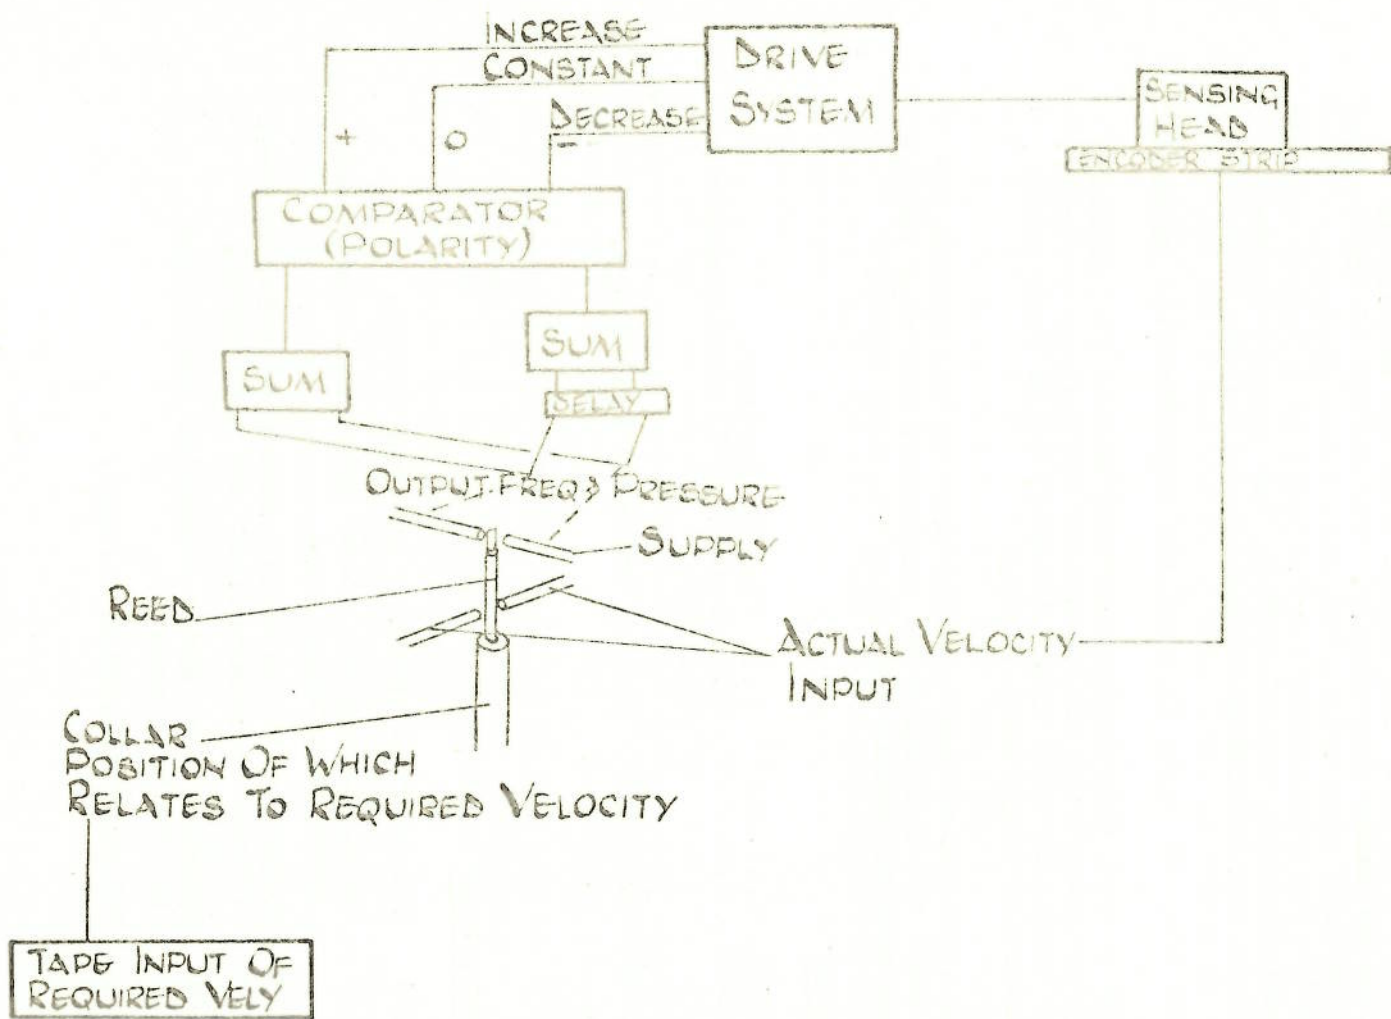 INCREASE
CONSTANT
DECREASE
+
O
-
DRIVE
SYSTEM
SENSING
HEAD
ENCODER STRIP
COMPARATOR
(POLARITY)
SUM
SUM
DELAY
OUTPUT FREQ & PRESSURE
SUPPLY
REED
ACTUAL VELOCITY
INPUT
COLLAR
POSITION OF WHICH
RELATES TO REQUIRED VELOCITY
TAPE INPUT OF
REQUIRED VELY